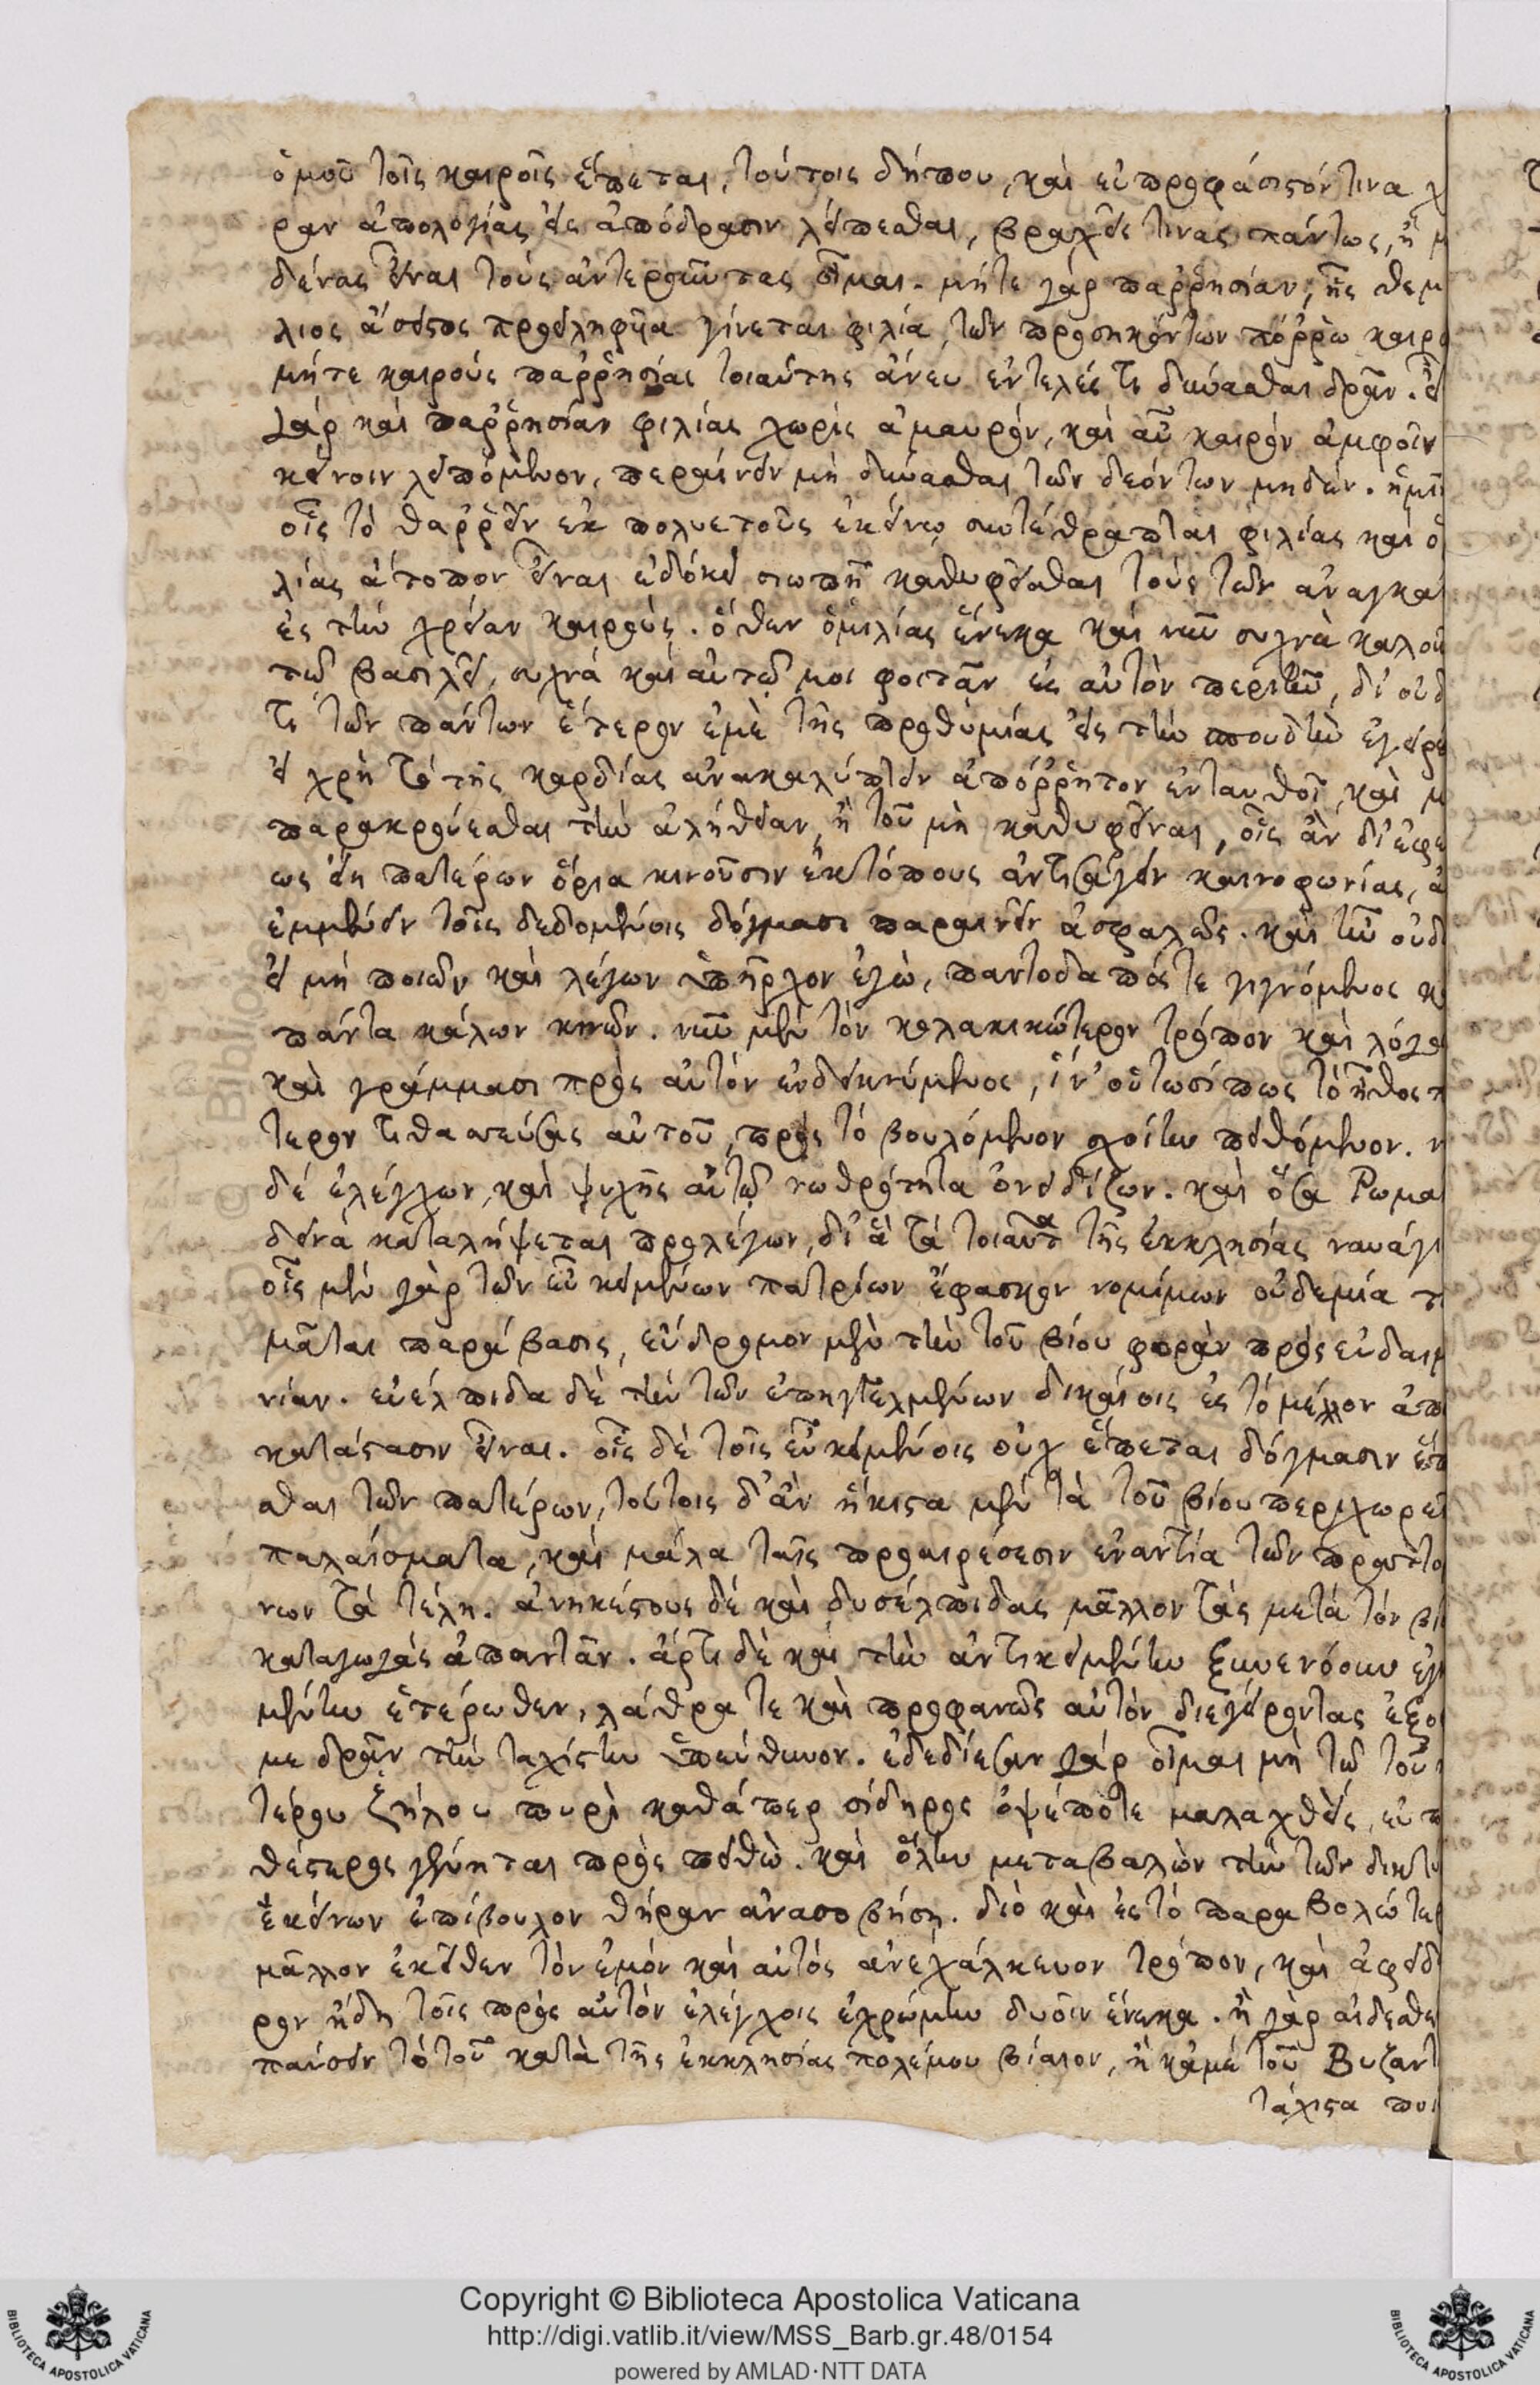 ὁμοῦ τοῖς καιροῖς ἕπεται, τούτοις δήπου, καὶ εὐπροφάσιστόν τινα χ
ραν ἀπολογίας εἰς ἀπόδρασιν λείπεσθαι, βραχεῖς τινας πάντως, ἢ μ
δένας εἶναι τοὺς ἀντεροῦντας οἶμαι. μήτε γὰρ παῤῥησίαν, ἧς θεμ
λιος ἄσειστος προειληφυῖα γίνεται φιλία, τῶν προσηκόντων πόῤῥω καιρο
μήτε καιροὺς παῤῥησίας τοιαύτης ἄνευ ἐντελές τι δύνασθαι δρᾶν. εἶ
γὰρ καὶ παῤῥησίαν φιλίας χωρὶς ἀμαυρὸν, καὶ αὖ καιρὸν ἀμφοῖν
κείνοιν λειπόμενον, περαίνειν μὴ δύνασθαι τῶν δεόντων μηδέν. ἡμῖ
οἷς τὸ θαῤῥεῖν ἐκ πολυετοῦς ἐκείνῳ συντέθραπται φιλίας καὶ ὁ
λίας ἄτοπον εἶναι ἐδόκει σιωπῇ καθυφεῖσθαι τοὺς τῶν ἀναγκαί
ἐς τὴν χρείαν καιρούς. ὅθεν ὁμιλίας ἕνεκα καὶ νῦν συχνὰ καλοῦ
τῷ βασιλεῖ, συχνὰ καὶ αὐτῷ μοι φοιτᾶν ἐς αὐτὸν περιῆν, δι' οὐδ
τι τῶν πάντων ἕτερον ἐμὲ τῆς προθυμίας εἰς τὴν σπουδὴν ἐγειρο
εἰ χρὴ τὸ τῆς καρδίας ἀνακαλύπτειν ἀπόῤῥητον ἐνταυθοῖ, καὶ μ
παρακρούεσθαι τὴν ἀλήθειαν, ἢ τοῦ μὴ καθυφεῖναι, οἷς ἂν δι' ἐφέ
εως εἴη πατέρων ὅρια κινοῦσιν ἐκτόπους ἀντεισάγειν καινοφωνίας, ἀ
ἐμμένειν τοῖς δεδομένοις δόγμασι παραινεῖν ἀσφαλῶς. καὶ ἦν οὐδ
εἰ μὴ ποιῶν καὶ λέγων ὑπῆρχον ἐγὼ, παντοδαπός τε γιγνόμενος κ
πάντα κάλων κινῶν. νῦν μὲν τὸν κολακικώτερον τρόπον καὶ λόγο
καὶ γράμμασι πρὸς αὐτὸν ἐνδεικνύμενος, ἵν' οὑτωσί πως τὸ ἦθος π
τερον τιθασεύσας αὐτοῦ, πρὸς τὸ βουλόμενον σχοίην πειθόμενον. ν
δὲ ἐλέγχων, καὶ ψυχῆς αὐτῷ νωθρότητα ὀνειδίζων. καὶ ὅσα Ῥωμα
δεινὰ καταλήψεται προλέγων, δι' ἃ τὰ τοιαῦτα τῆς ἐκκλησίας ναυάγι
οἷς μὲν γὰρ τῶν εὖ κειμένων πατρίων ἔφασκον νομίμων οὐδεμία τ
μᾶται παράβασις, εὔδρομον μὲν τὴν τοῦ βίου φορὰν πρὸς εὐδαιμ
νίαν. εὔελπιδα δὲ τὴν τῶν ἐπηγγελμένων δικαίοις ἐς τὸ μέλλον ἀπο
κατάστασιν εἶναι. οἷς δὲ τοῖς εὖ κειμένοις οὐχ ἕπεται δόγμασιν ἕπ
σθαι τῶν πατέρων, τούτοις δ' ἂν ἥκιστα μὲν τὰ τοῦ βίου περιχωρεῖ
παλαίσματα, καὶ μάλα ταῖς προαιρέσεσιν ἐναντία τῶν πραττο
νων τὰ τέλη. ἀνηκέστους δὲ καὶ δυσέλπιδας μᾶλλον τὰς μετὰ τὸν βί
καταγωγὰς ἀπαντᾶν. ἄρτι δὲ καὶ τὴν ἀντικειμένην ξυνενόουν ἐγ
μένην ἑτέρωθεν, λάθρα τε καὶ προφανῶς αὐτὸν διεγείροντας ἐξο
με δρᾶν τὴν ταχίστην ὑπεύθυνον. ἐδεδίεσαν γὰρ οἶμαι μὴ τῷ τοῦ
τέρου ζήλου πυρὶ καθάπερ σίδηρος ὀψέποτε μαλαχθεὶς, εὐπ
θέστερος γένηται πρὸς πειθώ. καὶ ὅλην μεταβαλὼν τὴν τῶν δικτύ
ἐκείνων ἐπίβουλον θήραν ἀνασοβήσῃ. διὸ καὶ ἐς τὸ παραβολώτε
μᾶλλον ἐκεῖθεν τὸν ἐμὸν καὶ αὐτὸς ἀνεχάλκευον τρόπον, καὶ ἀφειδ
ρον ἤδη τοῖς πρὸς αὐτὸν ἐλέγχοις ἐχρώμην δυοῖν ἕνεκα. ἢ γὰρ αἰδεσθε
παύσειν τὸ τοῦ κατὰ τῆς ἐκκλησίας πολέμου βίαιον, ἢ κἀμὲ τοῦ Βυζαντ
τάχιστα ποι
Copyright © Biblioteca Apostolica Vaticana
http://digi.vatlib.it/view/MSS_Barb.gr.48/0154
powered by AMLAD·NTT DATA
BIBLIOTECA APOSTOLICA VATICANA
BIBLIOTECA APOSTOLICA VATICANA